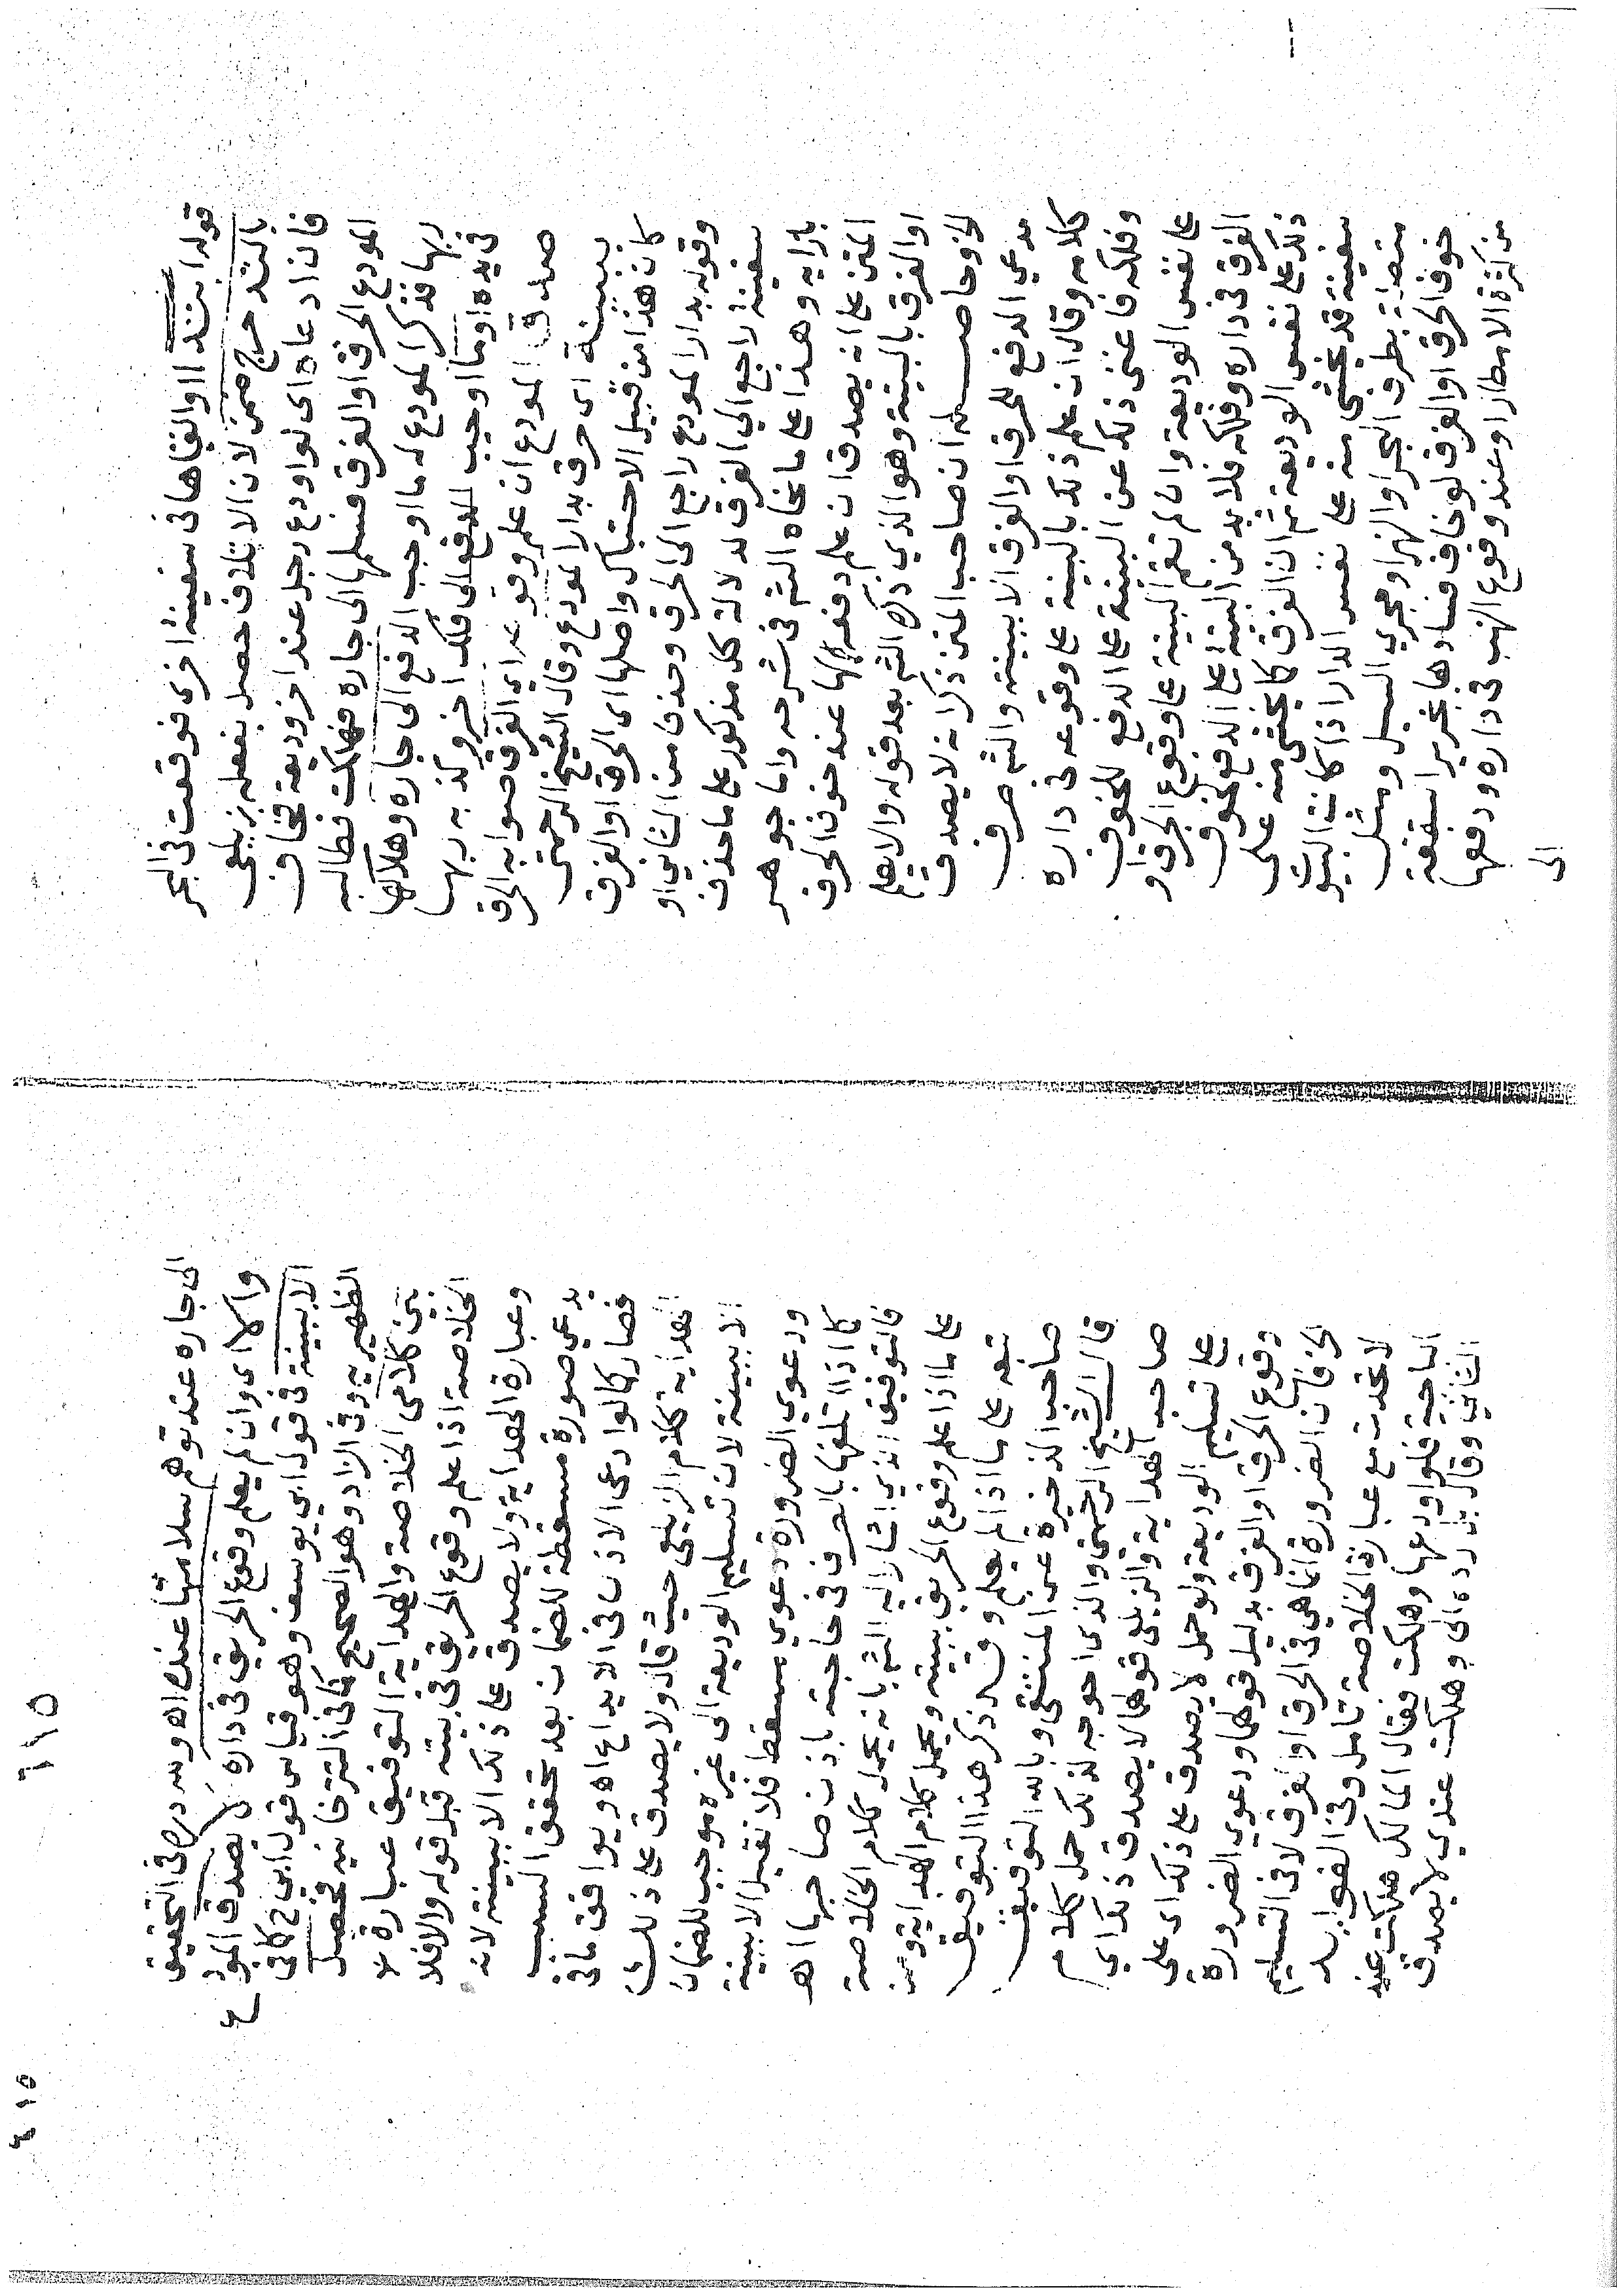 قوله ابتداء او القاها في سفينة اخرى فوقعت في البحر
بالتد حرج ضمن لان الاتلاف حصل بفعله زيلعي
فان ادعاه اى لو اودع رجل عند اخر وديعة فخاف
المودع الحرق او الغرق فسلمها الى جاره فهلكت فطالبه
ربها فذكر المودع له ما اوجب الدفع الى جاره وهلاكها
في يده او ما اوجب الدفع الى فلك اخر وكذبه ربها
صدق المودع ان علم وقوعه اي الغرق صوابه الحرق
ببينة اى حرق بدار المودع وقال الشيخ الرحمتى
كان هذا من قبيل الاحتباك واصلها اى الحرق او الغرق
وقوله بدار المودع راجع الى الحرق وحذف من الثاني او
سفينة راجع الي الغرق لدلالة كل مذكور على ما حذف
بازايه وهذا على ما نحاه الشم في شرحه واما جوهر
المتن على انه يصدق ان علم دفعه لها عند خوف الحرق
او الغرق بالبينة وهو الذي ذكره الشم بعد قوله والا يعلم
الخ وحاصله ان صاحب المتن ذكر انه لا يصدق
مدعي الدفع للحرق او الغرق الا ببينة والشم صرف
كلامه وقال ان علم ذلك بالبينة على وقوعه في داره
وفلكه فاغنى ذلك عن البينة على الدفع للخوف
على نفس الوديعة وان لم تقم البينة على وقوع الحرق او
الغرق في داره وفلكه فلا بد من البينة على الدفع لخوف
ذلك على نفس الوديعة ثم ان الغرق كما يخشى منه على
سفينة قد يخشى منه على نفس الدار اذا كانت البيوت
متصلة بطرف البحر او النهر او مجري السيل ومثل
خوف الحرق او الغرق لو خاف فسادها بخرير اسقفة
من كثرة الامطار او عند وقوع النهب في داره ودفعها
الى
٦١٥
٤١٥
الى جاره عند توهم سلامتها عنده اه وسد درص في التحقيق
والا اى وان لم يعلم وقوع الحريق في داره لا يصدق المودع
الا ببينة في قول ابي يوسف وهو قياس قول ابي ح كما في
الظهيريه وفي الزاد وهو الصحيح كما في التترخانيه فحصل
بين كلامى الخلاصة والهداية التوفيق عبارة
الخلاصة اذا علم وقوع الحريق في بيته قبل قوله والا فلا
وعبارة الهداية ولا يصدق على ذلك الا ببينة لانه
يدعي ضرورة مسقطة للضمان بعد تحقق السبب
فصار كما لو ادعى الاذن في الايداع اه ويوافق ما في
الهداية كلام الزيلعي حيث قال ولا يصدق على ذلك
الا ببينة لان تسليم الوديعة الى غيره موجب للضمان
ودعوي الضرورة دعوي مسقط فلا تقبل الا ببينة
كما اذا اتلفها بالصرف في حاجته باذن صاحبها اه
فالتوفيق الذي اشار اليه الشم بانه يحمل كلام الخلاصة
على ما اذا علم وقوع الحريق ببينة ويحمل كلام الهداية ومن
تبعه على ما اذا لم يعلم وقد ذكر هذا التوفيق
صاحب الذخيرة عن المنتقى وبالله التوفيق
قال الشيخ الرحمتى والذى احوجه لذلك حمل كلام
صاحب الهداية والزيلعى قولهما لا يصدق ذلك اي
على تسليم الوديعة ولو حمل لا يصدق على ذلك اى على
وقوع الحرق او الغرق بدليل قولهما ودعوي الضرورة
الخ فان الضرورة انما هي في الحرق او الغرق لا في التسليم
لاتحدت مع عبارة الخلاصة تامل وفي الفوايد
التاجية فلو اودعها وهلكت فقال المالك هلكت عند
الثاني وقال بل رده الى وهلكت عندي لا يصدق